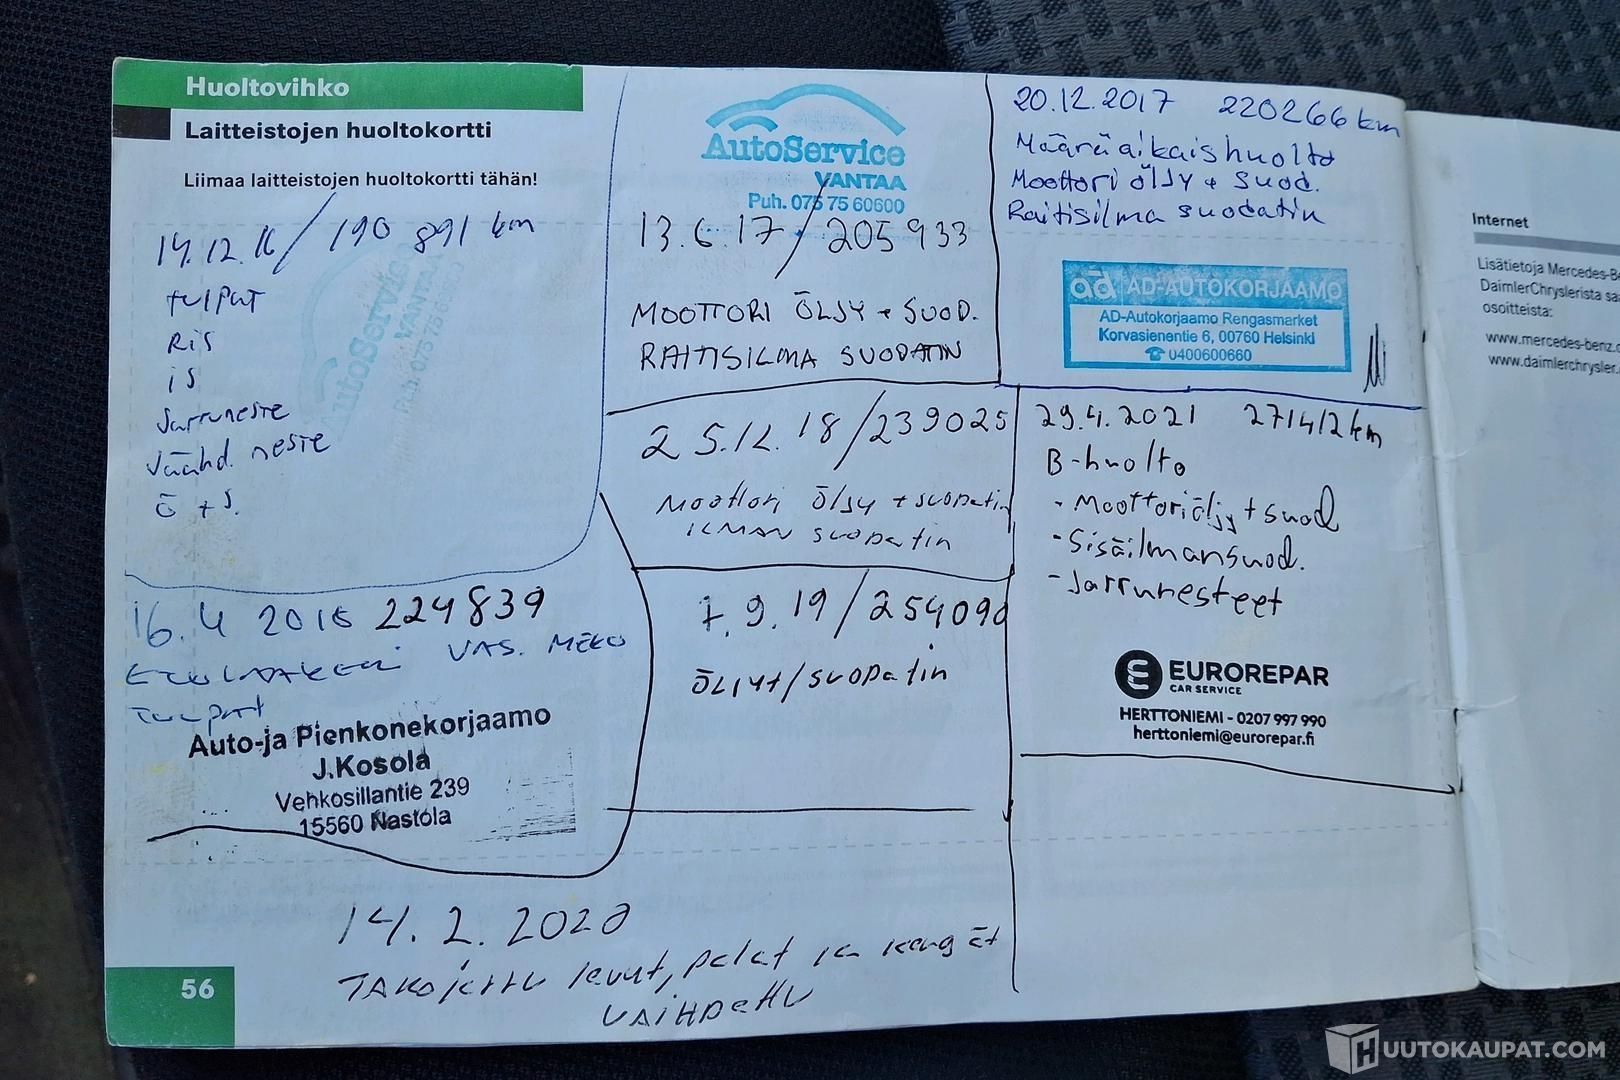 Huoltovihko
Laitteistojen huoltokortti
Liimaa laitteistojen huoltokortti tähän!
14.12.16 / 190 891 km
tulpat
RiS
iS
Jarruneste
Jäähd. neste
Ö + S.
AutoService
VANTAA
Puh. 075 75 60600
16.4 2018 224839
VAS. MEKO
Auto-ja Pienkonekorjaamo
J.Kosola
Vehkosillantie 239
15560 Nastola
AutoService
VANTAA
Puh. 075 75 60600
13.6.17 / 205 933
MOOTTORI ÖLJY + SUOD.
RAITISILMA SUODATIN
25.12.18 / 239025
Moottori öljy + suodatin
ILMAN suodatin
7.9.19 / 254090
ÖLJYt/suodatin
14.2.2020
TAKOJArru levyt, palat ja kengät
VAIHDettu
20.12.2017 220266 km
Määräaikaishuolto
Moottori öljy + suod.
Raitisilma suodatin
ad AD-AUTOKORJAAMO
AD-Autokorjaamo Rengasmarket
Korvasienentie 6, 00760 Helsinki
☎ 0400600660
29.4.2021 271412 km
B-huolto
- Moottoriöljy + suod
- Sisäilmansuod.
- Jarrunesteet
EUROREPAR
CAR SERVICE
HERTTONIEMI - 0207 997 990
herttoniemi@eurorepar.fi
56
Internet
Lisätietoja Mercedes-Be
DaimlerChryslerista sa
osoitteista:
www.mercedes-benz.
www.daimlerchrysler.
HUUTOKAUPAT.COM